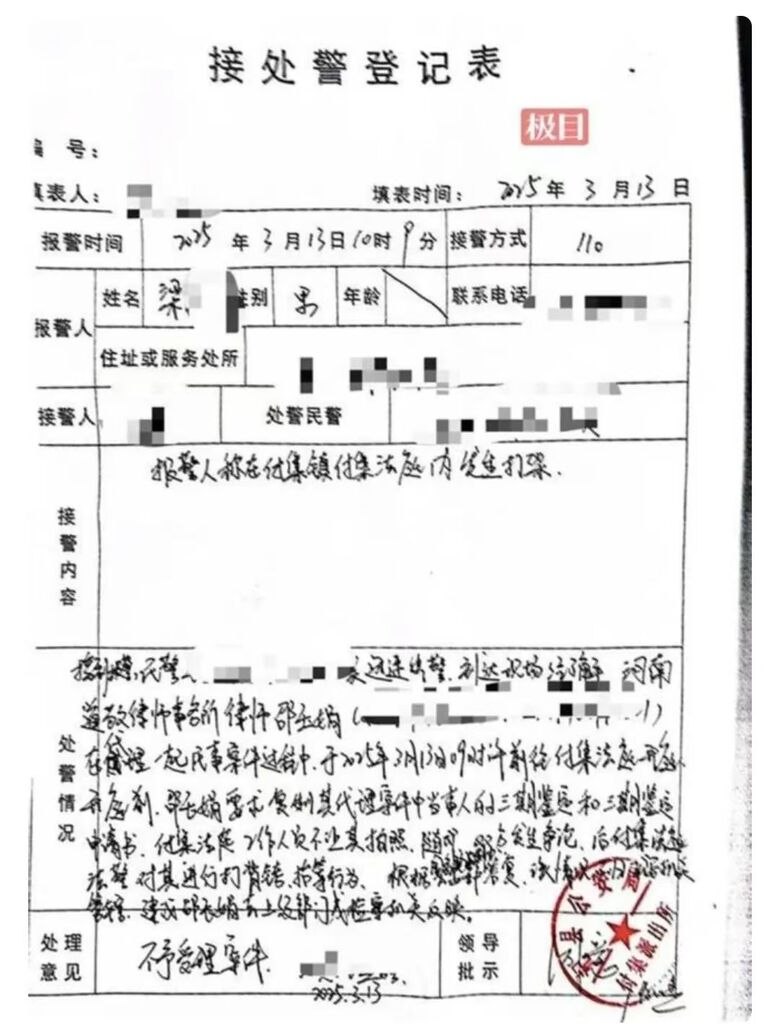 接处警登记表
极目
编 号：
填表人： 填表时间：2025年3月13日
报警时间 2025年3月13日10时9分 接警方式 110
报警人 姓名 梁 性别 男 年龄 联系电话
住址或服务处所
接警人 处警民警
接警内容
报警人称在付集镇付集法庭内发生打架.
处警情况
迅速出警,到达现场经了解 河南
律师事务所律师邵
在代理一起民事案件过程中,于2025年3月13日09时许前往付集法庭开庭,
开庭前,邵 娟要求复制其代理案件中当事人的三期鉴定和三期鉴定
申请书,付集法庭工作人员不让其拍照,随后,双方发生争论,后付集法庭
法警对其进行打背铐、 等行为. 根据 答复,该情况
管辖,建议邵 娟去上级部门或检察机关反映。
处理意见 不予受理案件. 领导批示
2025.3.13
县公安局
付集派出所